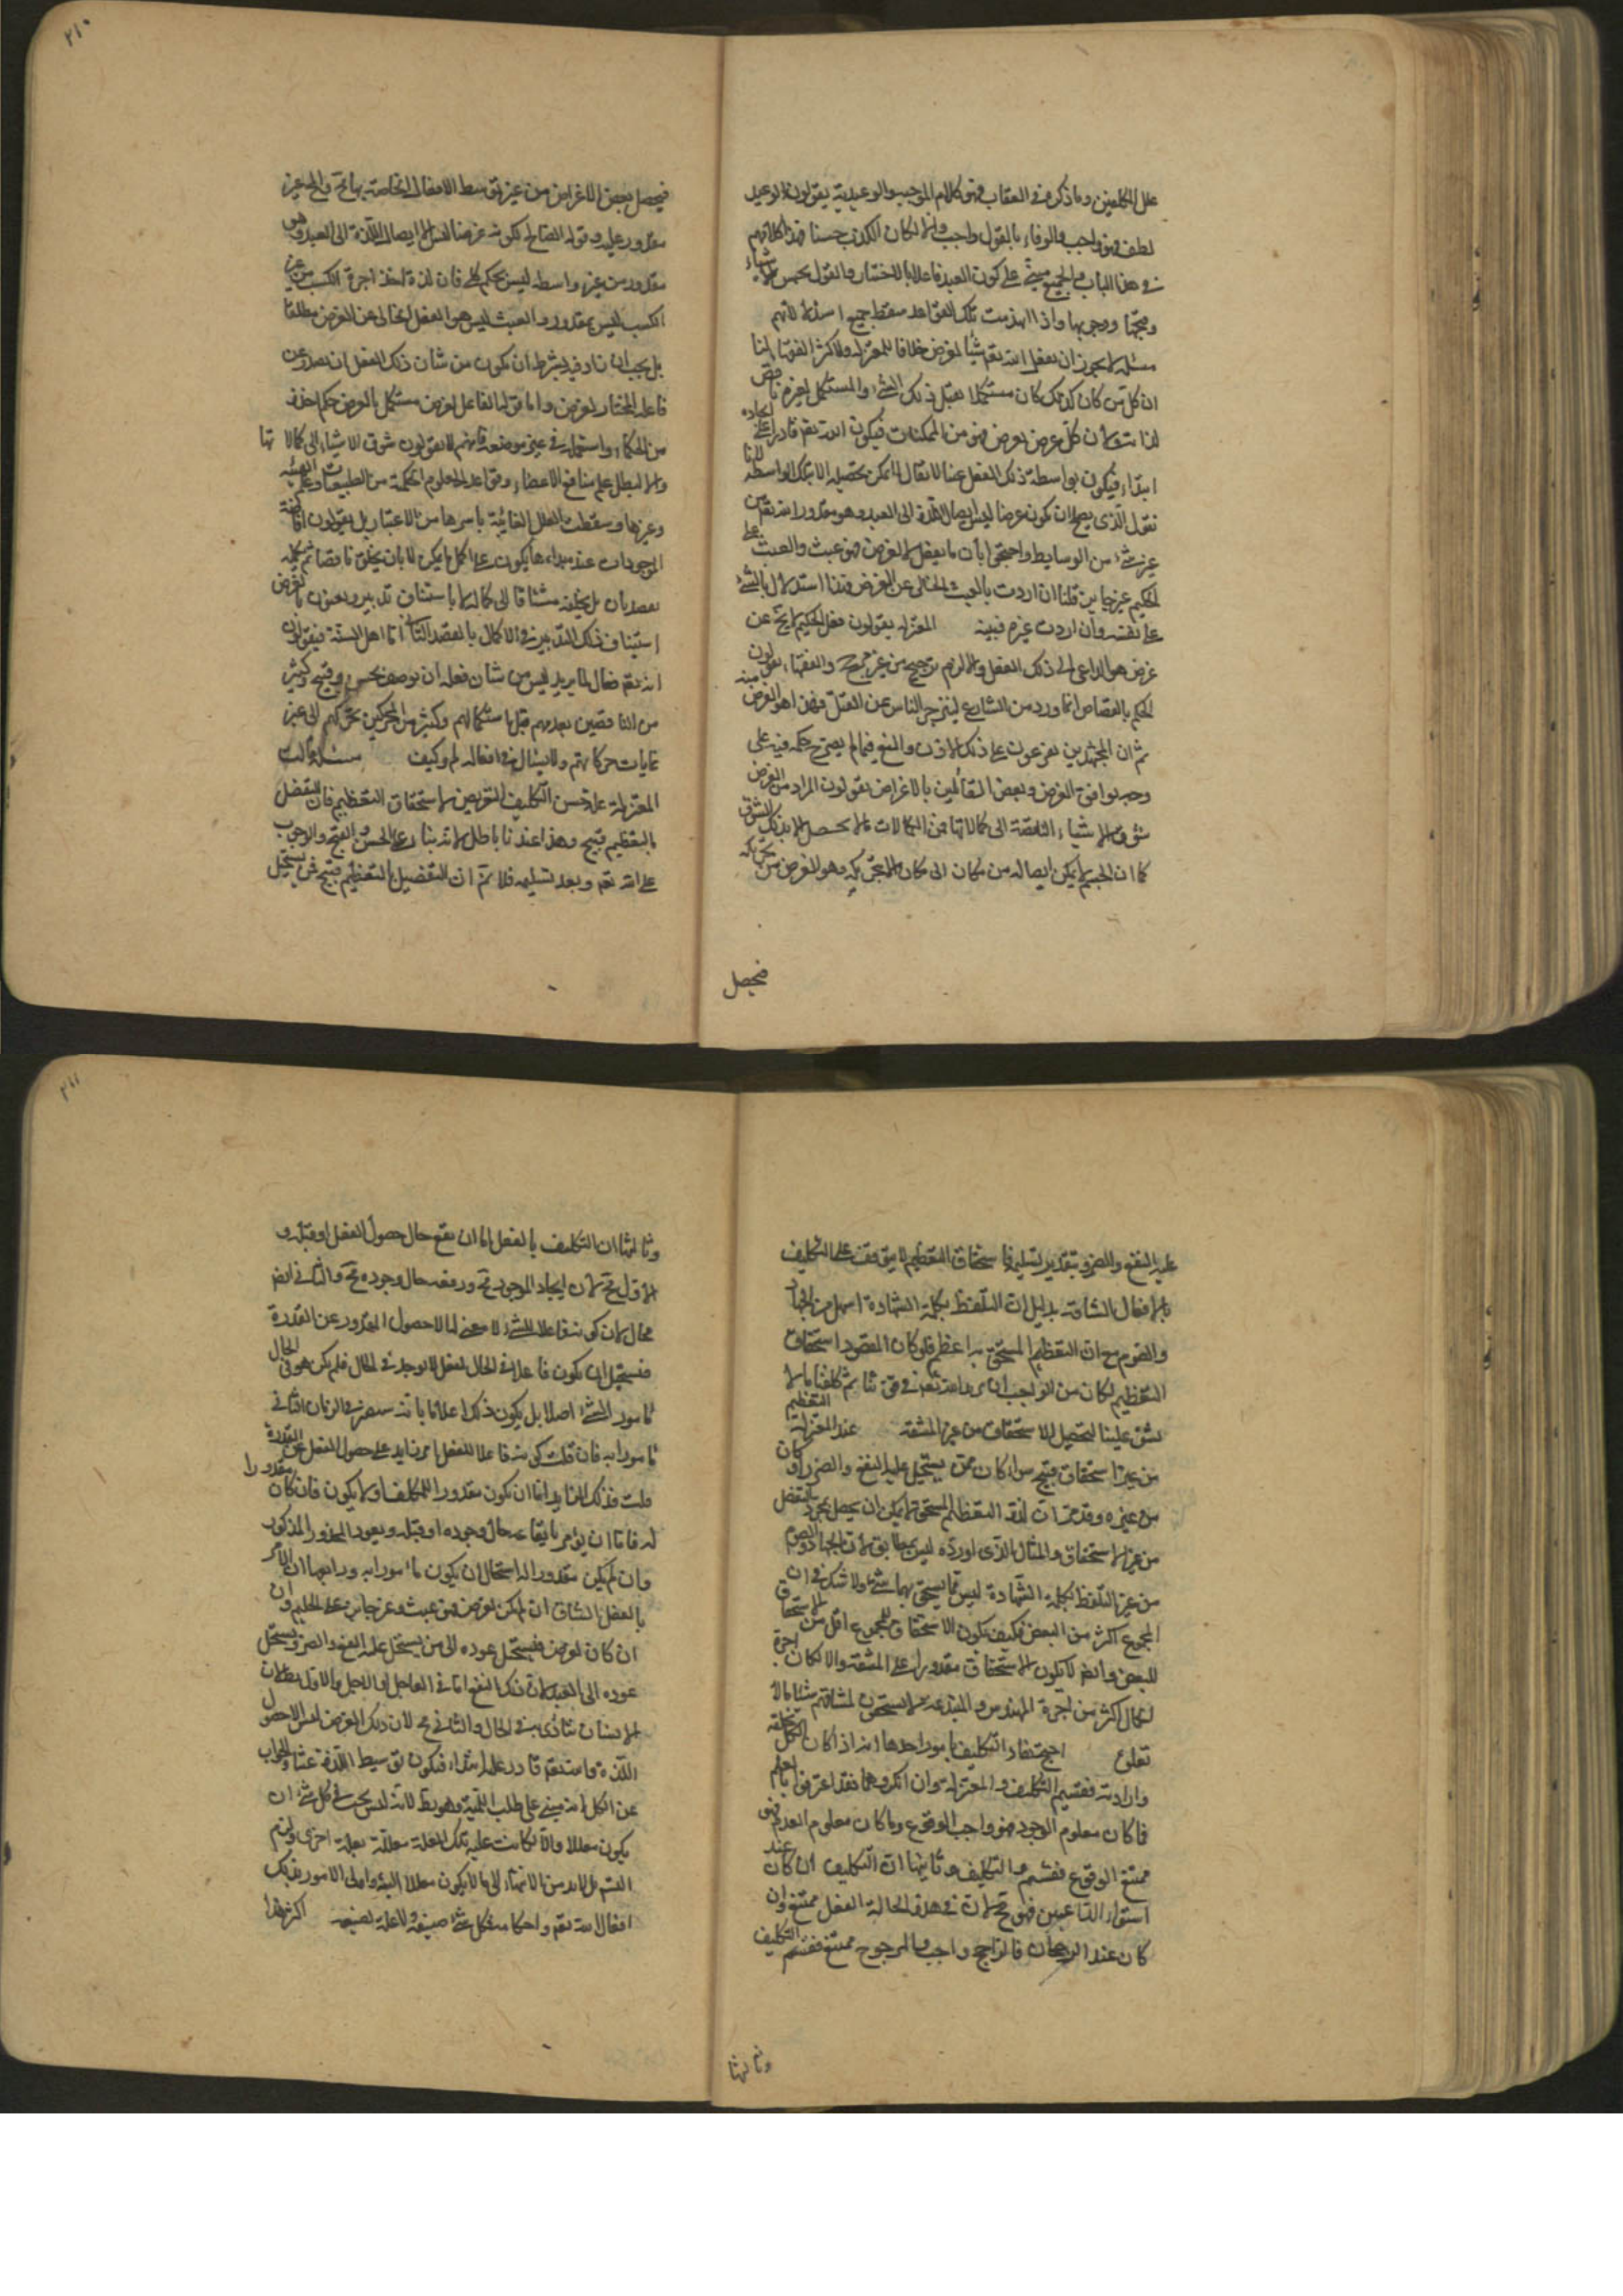 علل المكلفين وما ذكره في العقاب فهو كلام الموجب والوعيدية يقولون الوعيد
لطف فهو واجب والوفاء بالقول واجب والا لكان الكذب حسنا فهذا كلامهم
في هذا الباب والجميع مبنى على كون العبد فاعلا بالاختيار والقول بحسن الاشياء
وقبحها ووجوبها واذا انهدمت تلك القواعد سقط جميع استدلالاتهم
مسئلة لا يجوز ان يفعل الله تعم شيئا لغرض خلافا للمعتزلة ولاكثر الفقهاء لنا
ان كل من كان كذلك كان مستكملا بفعل ذلك الشئ والمستكمل بغيره ناقص
لذاته ولان كل غرض يفرض فهو من الممكنات فيكون الله تعم قادرا على ايجاده
ابتداء فيكون بواسطة ذلك الفعل عبثا لا يقال لا يمكن تحصيله الا بتلك الواسطة لانا
نقول الذى يصلح ان يكون غرضا ليس ايصال اللذة الى العبد وهو مقدور الله تعم من
غير شئ من الوسايط واحتجوا بأن ما يفعل لا لغرض فهو عبث والعبث على
الحكيم غير جايز قلنا ان اردت بالعبث الخالى عن الغرض فهذا استدلال بالشئ
على نفسه وان اردت غيره فبينه المعتزلة يقولون فعل الحكيم لا يخ عن
غرض هو الداعى الى ذلك الفعل والا لزم ترجيح من غير مرجح والفقهاء يقولون
الحكم بالقصاص انما ورد من الشارع لينزجر الناس عن القتل فهذا هو الغرض منه
ثم ان المجتهدين يفرعون على ذلك الاذن والمنع فيما لم يصرح حكمه فيه على
وجه يوافق الغرض وبعض القائلين بالاغراض يقولون المراد من الغرض
سوق الاشياء الناقصة الى كمالاتها فمن الكمالات ما لا يحصل الا بذلك السوق
كما ان الجسم لا يمكن ايصاله من مكان الى مكان الا بتحريكه وهو الغرض من تحريكه
فيحصل
٢١٠
فيحصل بعض الاغراض من غير توسط الافعال الخاصة بها محّ والمح غير
مقدور عليه وقوله الصالح لكونه غرضا ليس الا ايصال اللذة الى العبد وهو
مقدور من غير واسطة ليس بحكم كلى فان لذة اخذ اجرة الكسب من غير
الكسب ليس بمقدور والعبث ليس هو الفعل الخالى عن الغرض مطلقا
بل يجب ان يزاد فيه بشرط ان يكون من شان ذلك الفعل ان يصدر عن
فاعله المختار لغرض واما قوله الفاعل لغرض مستكمل بالغرض حكم اخذه
من الحكماء واستعمله في غير موضعه فانهم لا يقولون سوق الاشياء الى كمالاتها
والا لبطل علم منافع الاعضاء وقواعد العلوم الحكمية من الطبيعيات وعلم الهيئة
وغيرها وسقطت العلل الغائية باسرها من الاعتبار بل يقولون افاضة
الموجودات عند مبداءها يكون على اكمل ما يمكن لا بان يخلق ناقصا ثم يكمله
بقصد ثان بل يخلقه مشتاقا الى كماله لا باستيناف تدبير ويعنون بالغرض
استيناف ذلك التدبير في الاكمال بالقصد الثانى اما اهل السنة فيقولون
انه تعم فعال لما يريد ليس من شان فعله ان يوصف بحسن وقبح وكثير
من الناقصين يعدمهم قبل استكمالهم وكثير من المحركين يحركهم الى غير
غايات حركاتهم ولا يسئل في افعاله لم وكيف مسئلة قالت
المعتزلة علة حسن التكليف التعريض لاستحقاق التعظيم فان التفضل
بالتعظيم قبيح وهذا عندنا باطل لانه بناء على الحسن والقبح والوجوب
على الله تعم وبعد تسليمه فلا نم ان التفضيل بالتعظيم قبيح فمن يستحيل
عليه النفع والضر وبتقدير تسليمه فاستحقاق التعظيم لا يتوقف على التكليف
بالافعال الشاقة بدليل ان التلفظ بكلمة الشهادة اسهل من الجهاد
والصوم مع ان التعظيم المستحق به اعظم فلو كان المقصود استحقاق
التعظيم لكان من الواجب ان يزيد الله تعم في قوتنا ثم كلفنا بما لا
يشق علينا لتحصيل الاستحقاق من غير المشقة عند المعتزلة التعظيم
من غير استحقاق قبيح سواء كان ممن يستحيل عليه النفع والضر او كان
من غيره وقد مر ان لذة التعظيم المستحق لا يمكن ان يحصل بمجرد التفضل
من غير الاستحقاق والمثال الذى اورده ليس بمطابق لان الجهاد والصوم
من غير التلفظ بكلمة الشهادة ليس مما يستحق بهما شئ ولا شك في ان
المجموع اكثر من البعض فكيف يكون الاستحقاق للمجموع اقل من الاستحقاق
للبعض وايضم لا يكون الاستحقاق مقدورا على المشقة والا لكان اجرة
الحمال اكثر من اجرة المهندس والمبتدعة لا يستحقون لمشاقهم شيئا بالا
تفاق احتج نفاة التكليف بامور احدها انه اذا كان الكل بخلقه
وارادته فقبح التكليف والمعتزلة وان انكروهما فقد اعترفوا بالعلم
فما كان معلوم الوجود فهو واجب الوقوع وما كان معلوم العدم فهو
ممتنع الوقوع فقبح التكليف وثانيها ان التكليف ان كان عند
استواء الداعيين فهو محّ لان في هذه الحالة الفعل ممتنع وان
كان عند الرجحان فالراجح واجب والمرجوح ممتنع فقبح التكليف
وثالثها
٢١١
وثالثها ان التكليف بالفعل اما ان يقع حال حصول الفعل او قبله و
الاول محّ لان ايجاد الموجود محّ ورفعه حال وجوده محّ والثانى ايضم
محال لان كونه فاعلا للشئ لا معنى له الا حصول المقدور عن القدرة
فيستحيل ان يكون فاعلا في الحال لفعل لا يوجد في الحال فلم يكن هو في الحال
مأمورا بالشئ اصلا بل يكون ذلك اعلاما بانه سيصير في الزمان الثانى
مأمورا به فان قلت كونه فاعلا للفعل امر زايد على حصول الفعل عن القدرة
قلت فذلك الزايد اما ان يكون مقدورا للمكلف او لا يكون فان كان مقدورا
له فاما ان يؤمر بايقاعه حال وجوده او قبله ويعود المحذور المذكور
وان لم يكن مقدورا له استحال ان يكون مأمورا به ورابعها ان الامر
بالفعل الشاق ان لم يكن لغرض فهو عبث وغير جايز على الحكيم وان
ان كان لغرض فيستحيل عوده الى من يستحيل عليه النفع والضر ويستحيل
عوده الى العبد لان ذلك النفع اما في العاجل او الاجل والاول بط لان
الانسان يتأذى به في الحال والثانى محّ لان ذلك الغرض ليس الا حصول
اللذة والله تعم قادر عليه ابتداء فيكون توسيط التكليف عبثا والجواب
عن الكل انه مبنى على طلب اللمية وهو بط لانه ليس يجب في كل شئ ان
يكون معللا والا لكانت علية تلك العلة معللة بعلة اخرى ولزم
التسم بل لا بد من الانتهاء الى ما لا يكون معللا البتة واولى الامور بذلك
افعال الله تعم واحكامه فكل شئ صنيعه ولا علة لصنيعه اكثر هذا